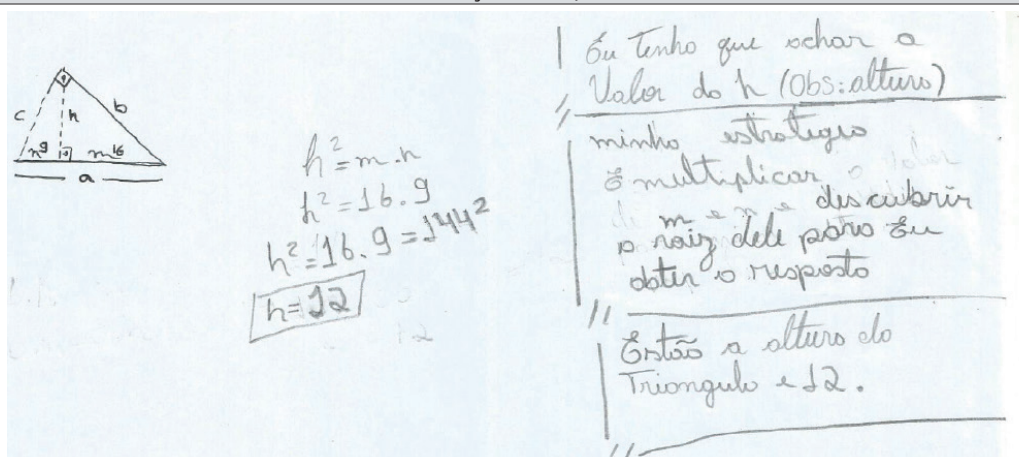 c
h
b
n 9
m 16
a
h² = m . n
h² = 16 . 9
h² = 16 . 9 = 144²
h = 12
Eu Tenho que achar a
Valor do h (Obs: altura)
minha estrategia
É multiplicar o valor
de m e n e descubrir
a raiz dele para Eu
obter a resposta
Então a altura do
Triangulo e 12.